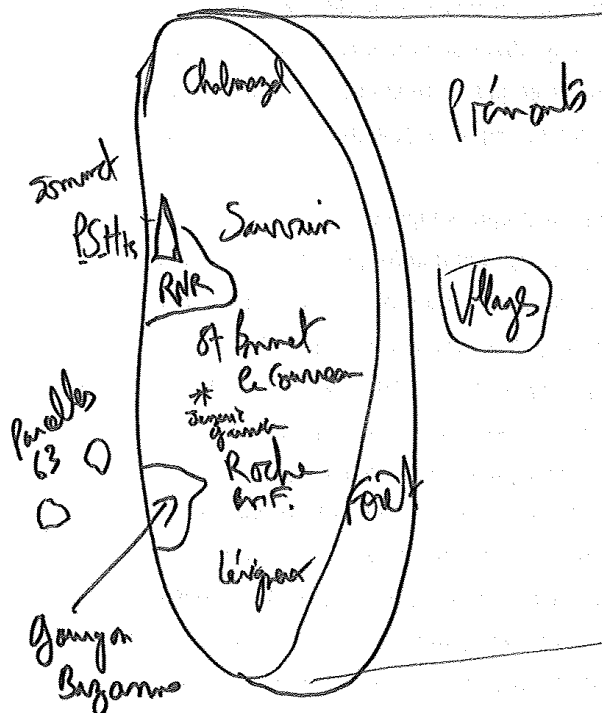 Chalmazel
Piémonts
Sommet
P.S.Hts
Sauvain
RNR
Villages
St Bonnet
le Courreau
*
Jasserie
Roche
en F.
Parcelles
63
Forêt
Lérigneux
Bazanne